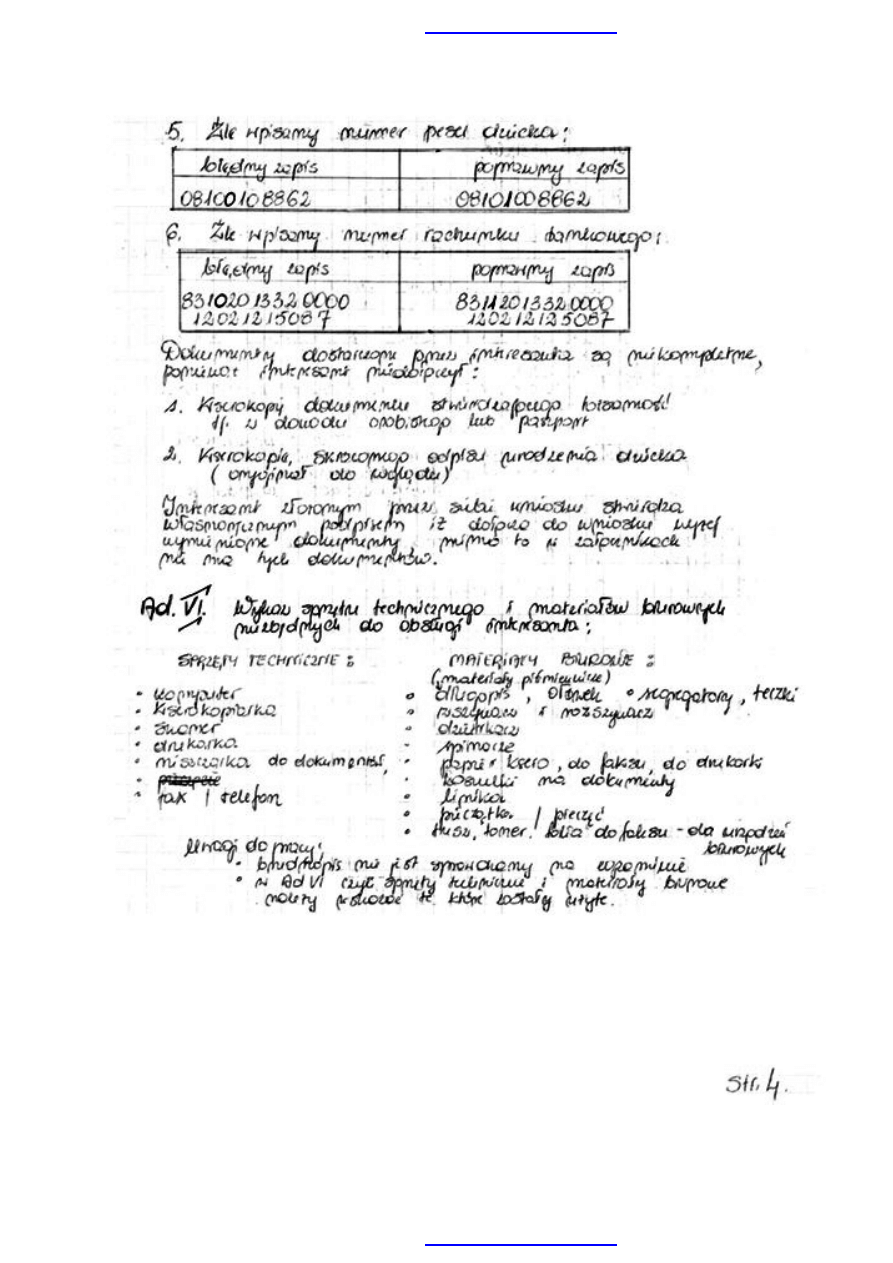 5. Źle wpisany numer pesel dziecka:
błędny zapis poprawny zapis
08100108862 08101008862
6. Źle wpisany numer rachunku bankowego:
błędny zapis poprawny zapis
83102013320000 83112013320000
12021215087 120212125087
Dokumenty dostarczone przez interesanta są niekompletne,
ponieważ interesant niedołączył:
1. Kserokopij dokumentu stwierdzającego tożsamość
tj. z dowodu osobistego lub paszport
2. Kserokopie, skróconego odpisu urodzenia dziecka
(oryginał do wglądu)
Interesant złożonym przez siebie wniosku stwierdza
własnoręcznym podpisem iż dołącza do wniosku wyżej
wymienione dokumenty, mimo to w załącznikach
nie ma tych dokumentów.
Ad. VI. Wykaz sprzętu technicznego i materiałów biurowych
niezbędnych do obsługi interesanta:
SPRZĘTY TECHNICZNE: MATERIAŁY BIUROWE:
(materiały piśmiennicze)
• komputer • długopis, ołówek • segregatory, teczki
• kserokopiarka • zszywacz i rozszywacz
• skaner • dziurkacz
• drukarka • spinacze
• niszczarka do dokumentów, • papier ksero, do faksu, do drukarki
• koszulki na dokumenty
• fax / telefon • linijka
• pieczątka / pieczęć
• tusz, toner, folia do faksu - dla urządzeń
biurowych
Uwagi do pracy:
• brudnopis nie jest sprawdzany na egzaminie
• w Ad VI czyli sprzęty techniczne i materiały biurowe
należy wskazać te które zostały użyte.
Str. 4.